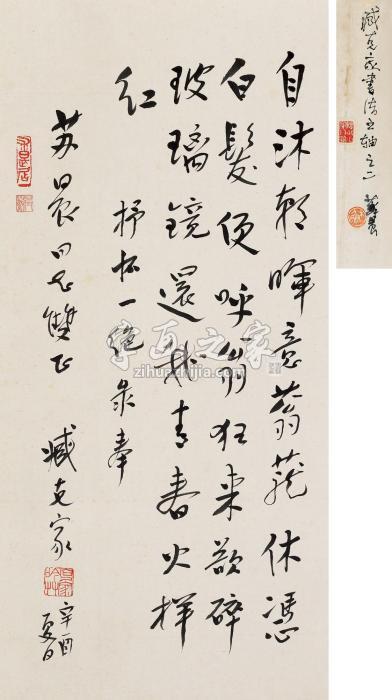 自沐朝晖意蓊茏休凭
白髮便呼翁狂来欲碎
玻璃镜還我青春火样
红 抒怀一绝录奉
苏晨同志雙正
臧克家
辛酉夏日
臧克家書法立轴之二 苏晨
字画之家
zihuazhijia.com